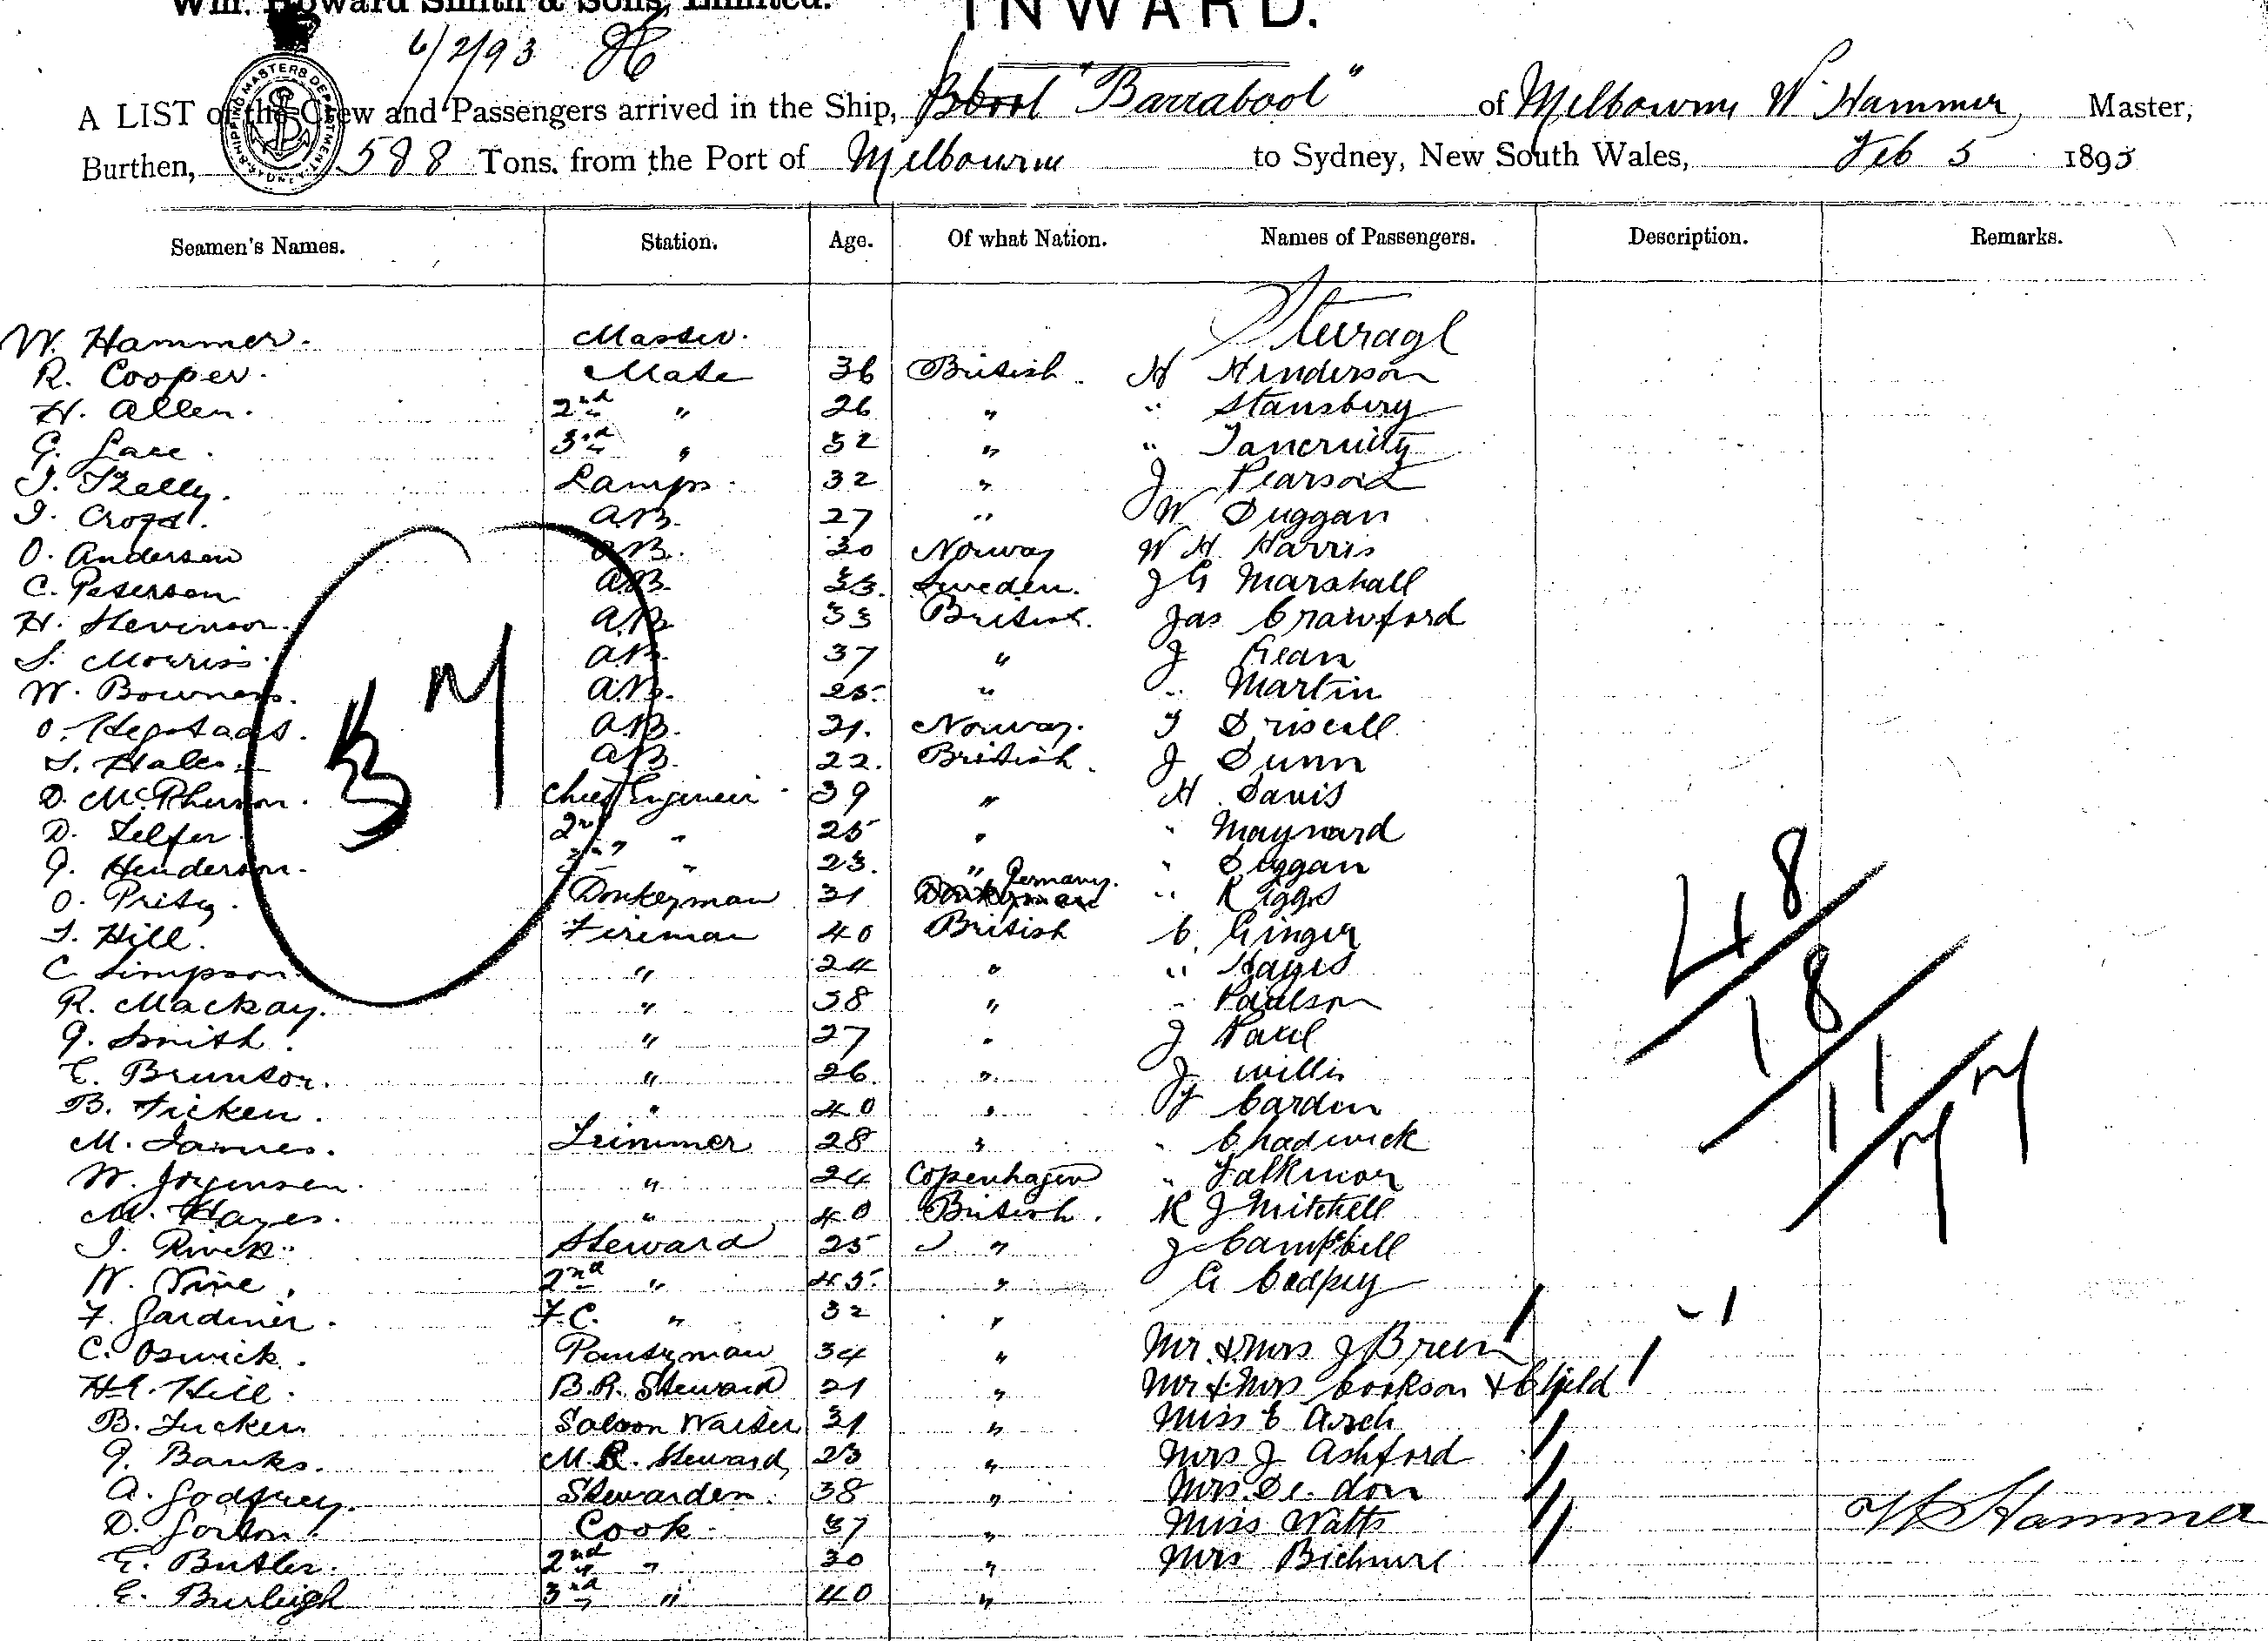 Wm. Howard Smith & Sons, Limited.
INWARD.
6/2/93
SHIPPING MASTERS DEPARTMENT SYDNEY
A LIST of the Crew and Passengers arrived in the Ship, "Barrabool" of Melbourne W. Hammer, Master,
Burthen, 588 Tons. from the Port of Melbourne to Sydney, New South Wales, Feb 5 1893
Seamen's Names. Station. Age. Of what Nation. Names of Passengers. Description. Remarks.
Steerage
W. Hammer. Master.
R. Cooper. Mate 36 British H Henderson
H. Allen. 2nd " 26 " " Stansbery
G. 3rd " 32 " "
J. Kelly. Lamps. 32 " J Pearson
A.B. 27 " W Duggan
O. Andersen A.B. 30 Norway W H Harris
C. Petersen A.B. 33. Sweden. J G Marshall
H. Stevinson. A.B. 33 British. Jas Crawford
S. Morris. A.B. 37 " J Gean
W. A.B. 25. " " Martin
O. A.B. 21. Norway. T Driscoll
S. Hales. A.B. 22. British. J Dunn
D. McPherson. Chief Engineer 39 " H Davis
D. Telfer. 2nd " 25 " " Maynard
J. Henderson. 3rd " 23. " " Duggan
O. Donkeyman 31 Germany. " Riggs
T. Hill. Fireman 40 British C. Ginger
C Simpson. " 24 " " Hayes
R. Mackay. " 38 " " Paulson
J. Smith. " 27 " J Paul
E. " 26. " J Willis
B. Ficken. " 40 " J Carden
M. James. Trimmer 28 " " Chadwick
W. Jorgensen. " 24 Copenhagen "
M. Hayes. " 40 British. R J Mitchell
J. Steward 25 " J Campbell
W. Vine. 2nd " 45. " G
F. Gardiner. F.C. " 32 "
C. Oswick. Pantryman 34 " Mr & Mrs J Breen
H.E. Hill. B.R. Steward 21 " Mr & Mrs Cookson & Child
B. Tucker Saloon Waiter 31 " Miss E Arch
J. Banks. M.R. Steward 23 " Mrs J Ashford
A. Godfrey. 38 " Mrs
D. Cook. 37 " Miss Watts
E. Butler. 2nd " 30 " Mrs
E. Burleigh 3rd " 40 "
48
18
11
W Hammer